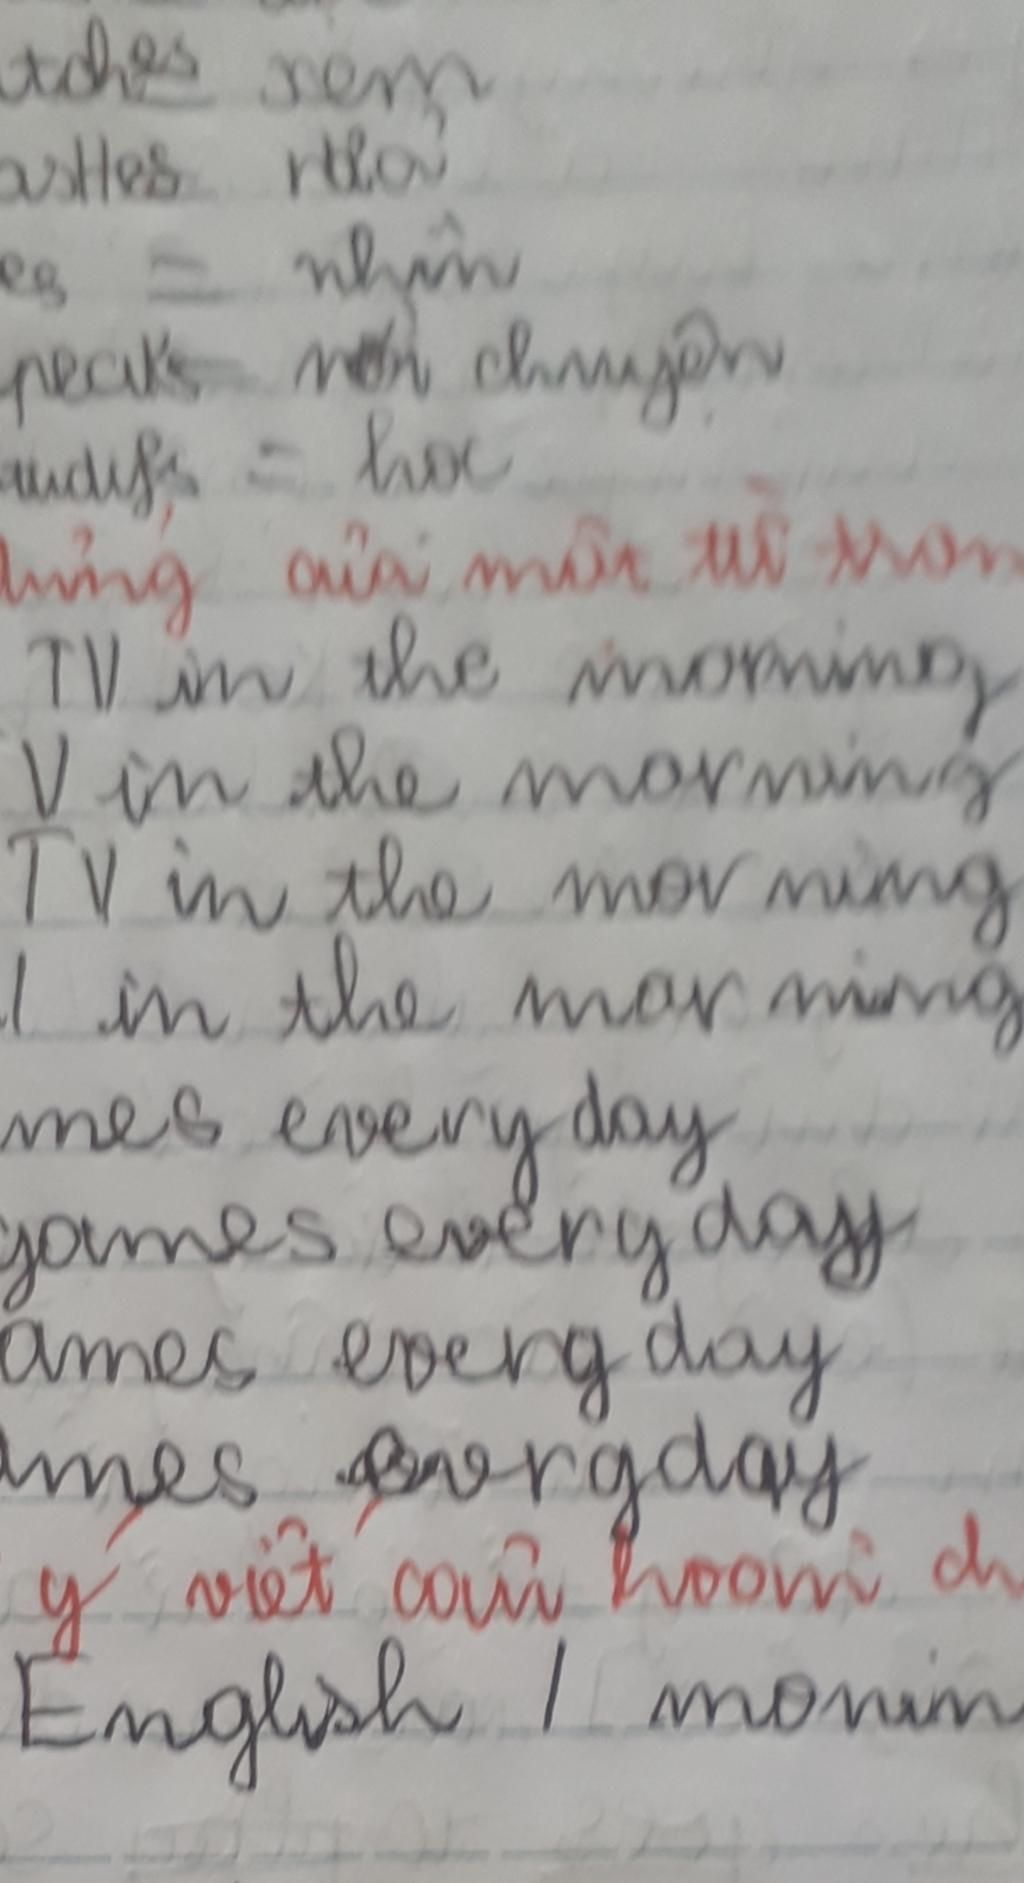 tches xem
es = nhìn
peaks nói chuyện
= học
của một từ tron
TV in the morning
V in the morning
TV in the morning
in the morning
mes every day
games every day
ames every day
ames everyday
ý viết câu hoàn ch
English / monin